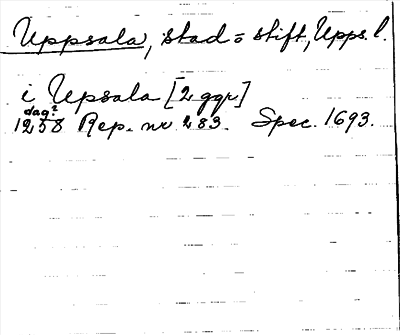 Uppsala, stad = stift, Upps. l.
i Upsala [2 ggr]
dag?
1258 Rep. nr 283. Spec. 1693.